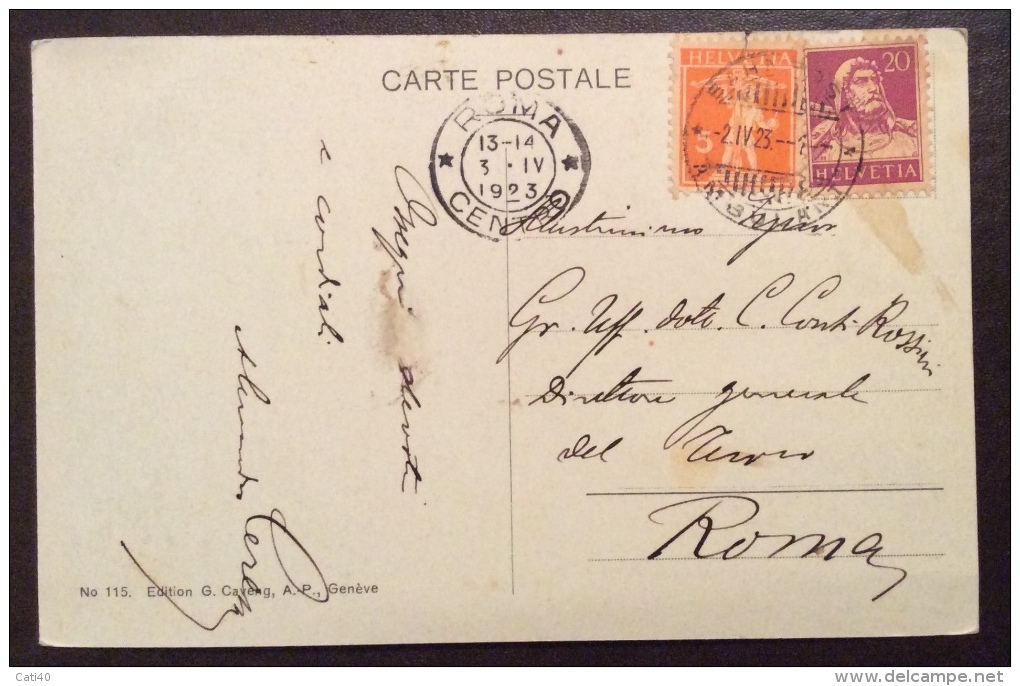 CARTE POSTALE
HELVETIA
5
20
HELVETIA
-2.IV.23.--
ROMA
13-14
3 · IV
1923
CENTRO
Ossequi devoti
e cordiali
Illustrissimo Signor
Gr. Uff. dott. C. Conti Rossini
Direttore generale
del Tesoro
Roma
No 115. Edition G. Caveng, A.-P., Genève
Cati40
delcampe.net